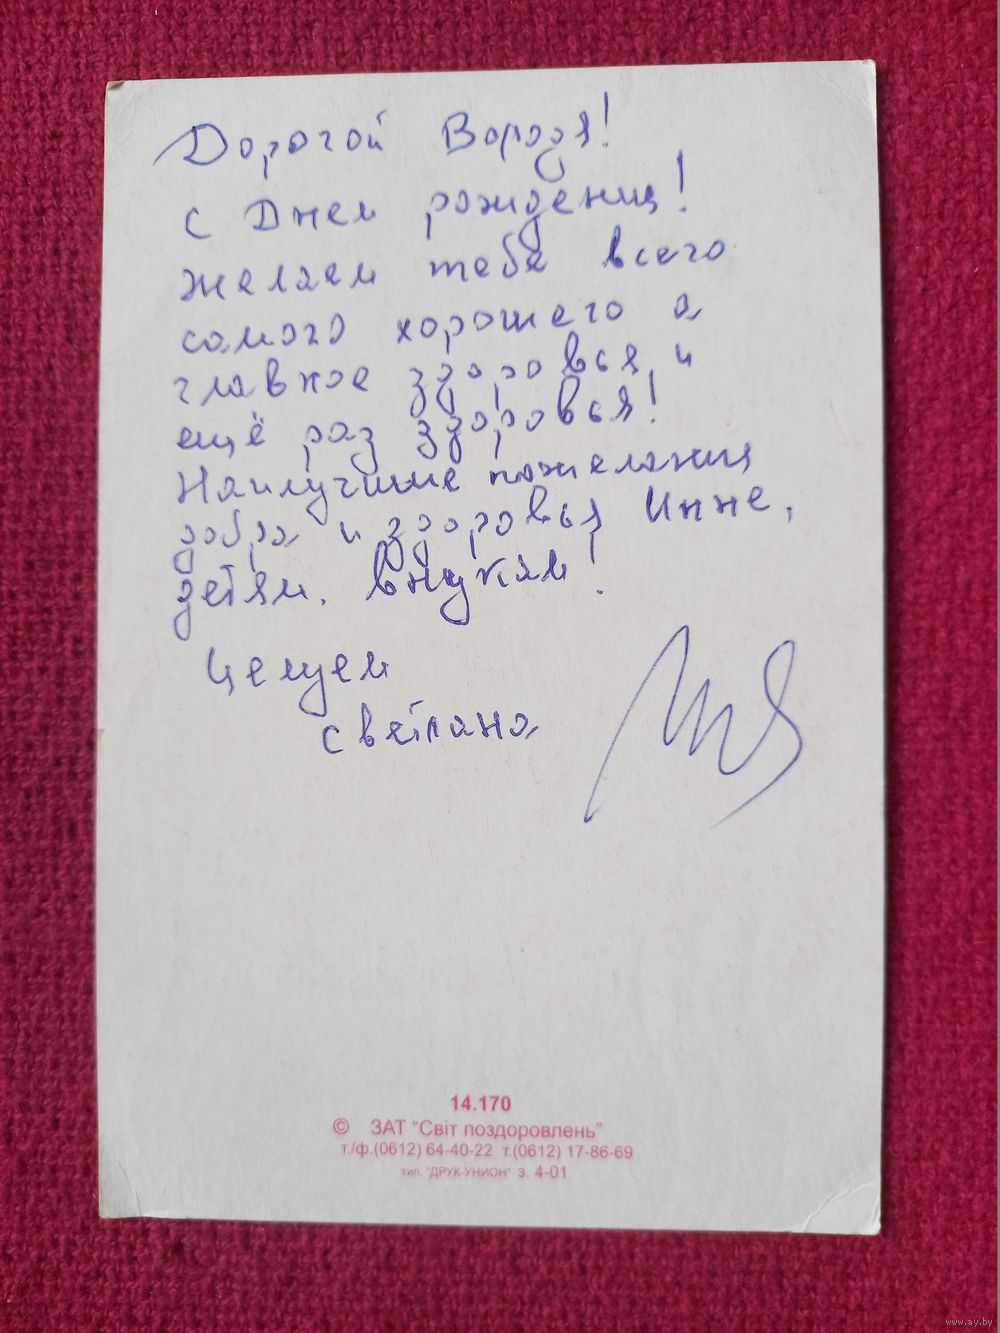 Дорогой Володя!
С Днем рождения!
Желаем тебе всего
самого хорошего а
главное здоровья и
ещё раз здоровья!
Наилучшие пожелания
добра и здоровья Инне,
детям, внукам!
Целуем
Светлана
14.170
© ЗАТ "Світ поздоровлень"
т./ф.(0612) 64-40-22 т.(0612) 17-86-69
тип. "ДРУК-УНИОН" з. 4-01
www.ay.by